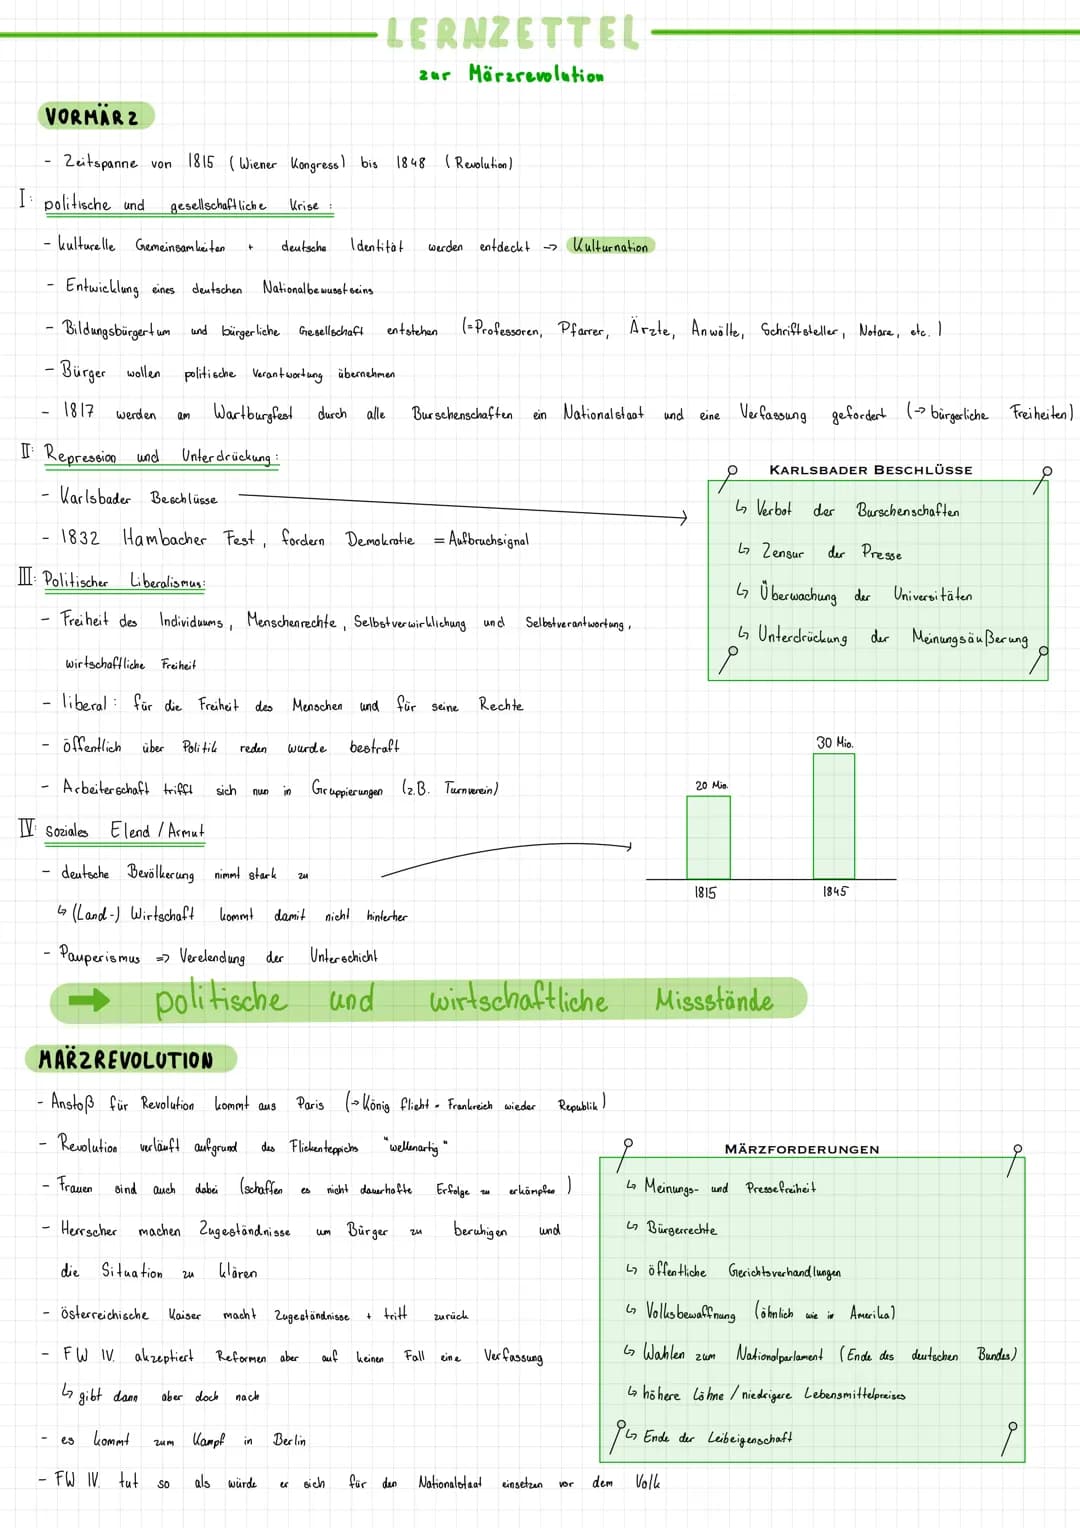 LERNZETTEL
zur Märzrevolution
VORMÄRZ
- Zeitspanne von 1815 (Wiener Kongress) bis 1848 (Revolution)
I: politische und gesellschaftliche Krise:
- kulturelle Gemeinsamkeiten + deutsche Identität werden entdeckt -> Kulturnation
- Entwicklung eines deutschen Nationalbewusstseins
- Bildungsbürgertum und bürgerliche Gesellschaft entstehen (=Professoren, Pfarrer, Ärzte, Anwälte, Schriftsteller, Notare, etc.)
- Bürger wollen politische Verantwortung übernehmen
- 1817 werden am Wartburgfest durch alle Burschenschaften ein Nationalstaat und eine Verfassung gefordert (-> bürgerliche Freiheiten)
II: Repression und Unterdrückung:
- Karlsbader Beschlüsse
- 1832 Hambacher Fest, fordern Demokratie = Aufbruchsignal
KARLSBADER BESCHLÜSSE
↳ Verbot der Burschenschaften
↳ Zensur der Presse
↳ Überwachung der Universitäten
↳ Unterdrückung der Meinungsäußerung
III: Politischer Liberalismus:
- Freiheit des Individuums, Menschenrechte, Selbstverwirklichung und Selbstverantwortung,
wirtschaftliche Freiheit
- liberal: für die Freiheit des Menschen und für seine Rechte
- öffentlich über Politik reden wurde bestraft
- Arbeiterschaft trifft sich nun in Gruppierungen (z.B. Turnverein)
IV: soziales Elend / Armut
- deutsche Bevölkerung nimmt stark zu
↳ (Land-) Wirtschaft kommt damit nicht hinterher
- Pauperismus => Verelendung der Unterschicht
20 Mio.
30 Mio.
1815
1845
➡ politische und wirtschaftliche Missstände
MÄRZREVOLUTION
- Anstoß für Revolution kommt aus Paris (-> König flieht - Frankreich wieder Republik)
- Revolution verläuft aufgrund des Flickenteppichs "wellenartig"
- Frauen sind auch dabei (schaffen es nicht dauerhafte Erfolge zu erkämpfen)
- Herrscher machen Zugeständnisse um Bürger zu beruhigen und
die Situation zu klären
- österreichische Kaiser macht Zugeständnisse + tritt zurück
- FW IV. akzeptiert Reformen aber auf keinen Fall eine Verfassung
↳ gibt dann aber doch nach
- es kommt zum Kampf in Berlin
- FW IV. tut so als würde er sich für den Nationalstaat einsetzen vor dem Volk
MÄRZFORDERUNGEN
↳ Meinungs- und Pressefreiheit
↳ Bürgerrechte
↳ öffentliche Gerichtsverhandlungen
↳ Volksbewaffnung (ähnlich wie in Amerika)
↳ Wahlen zum Nationalparlament (Ende des deutschen Bundes)
↳ höhere Löhne / niedrigere Lebensmittelpreises
↳ Ende der Leibeigenschaft